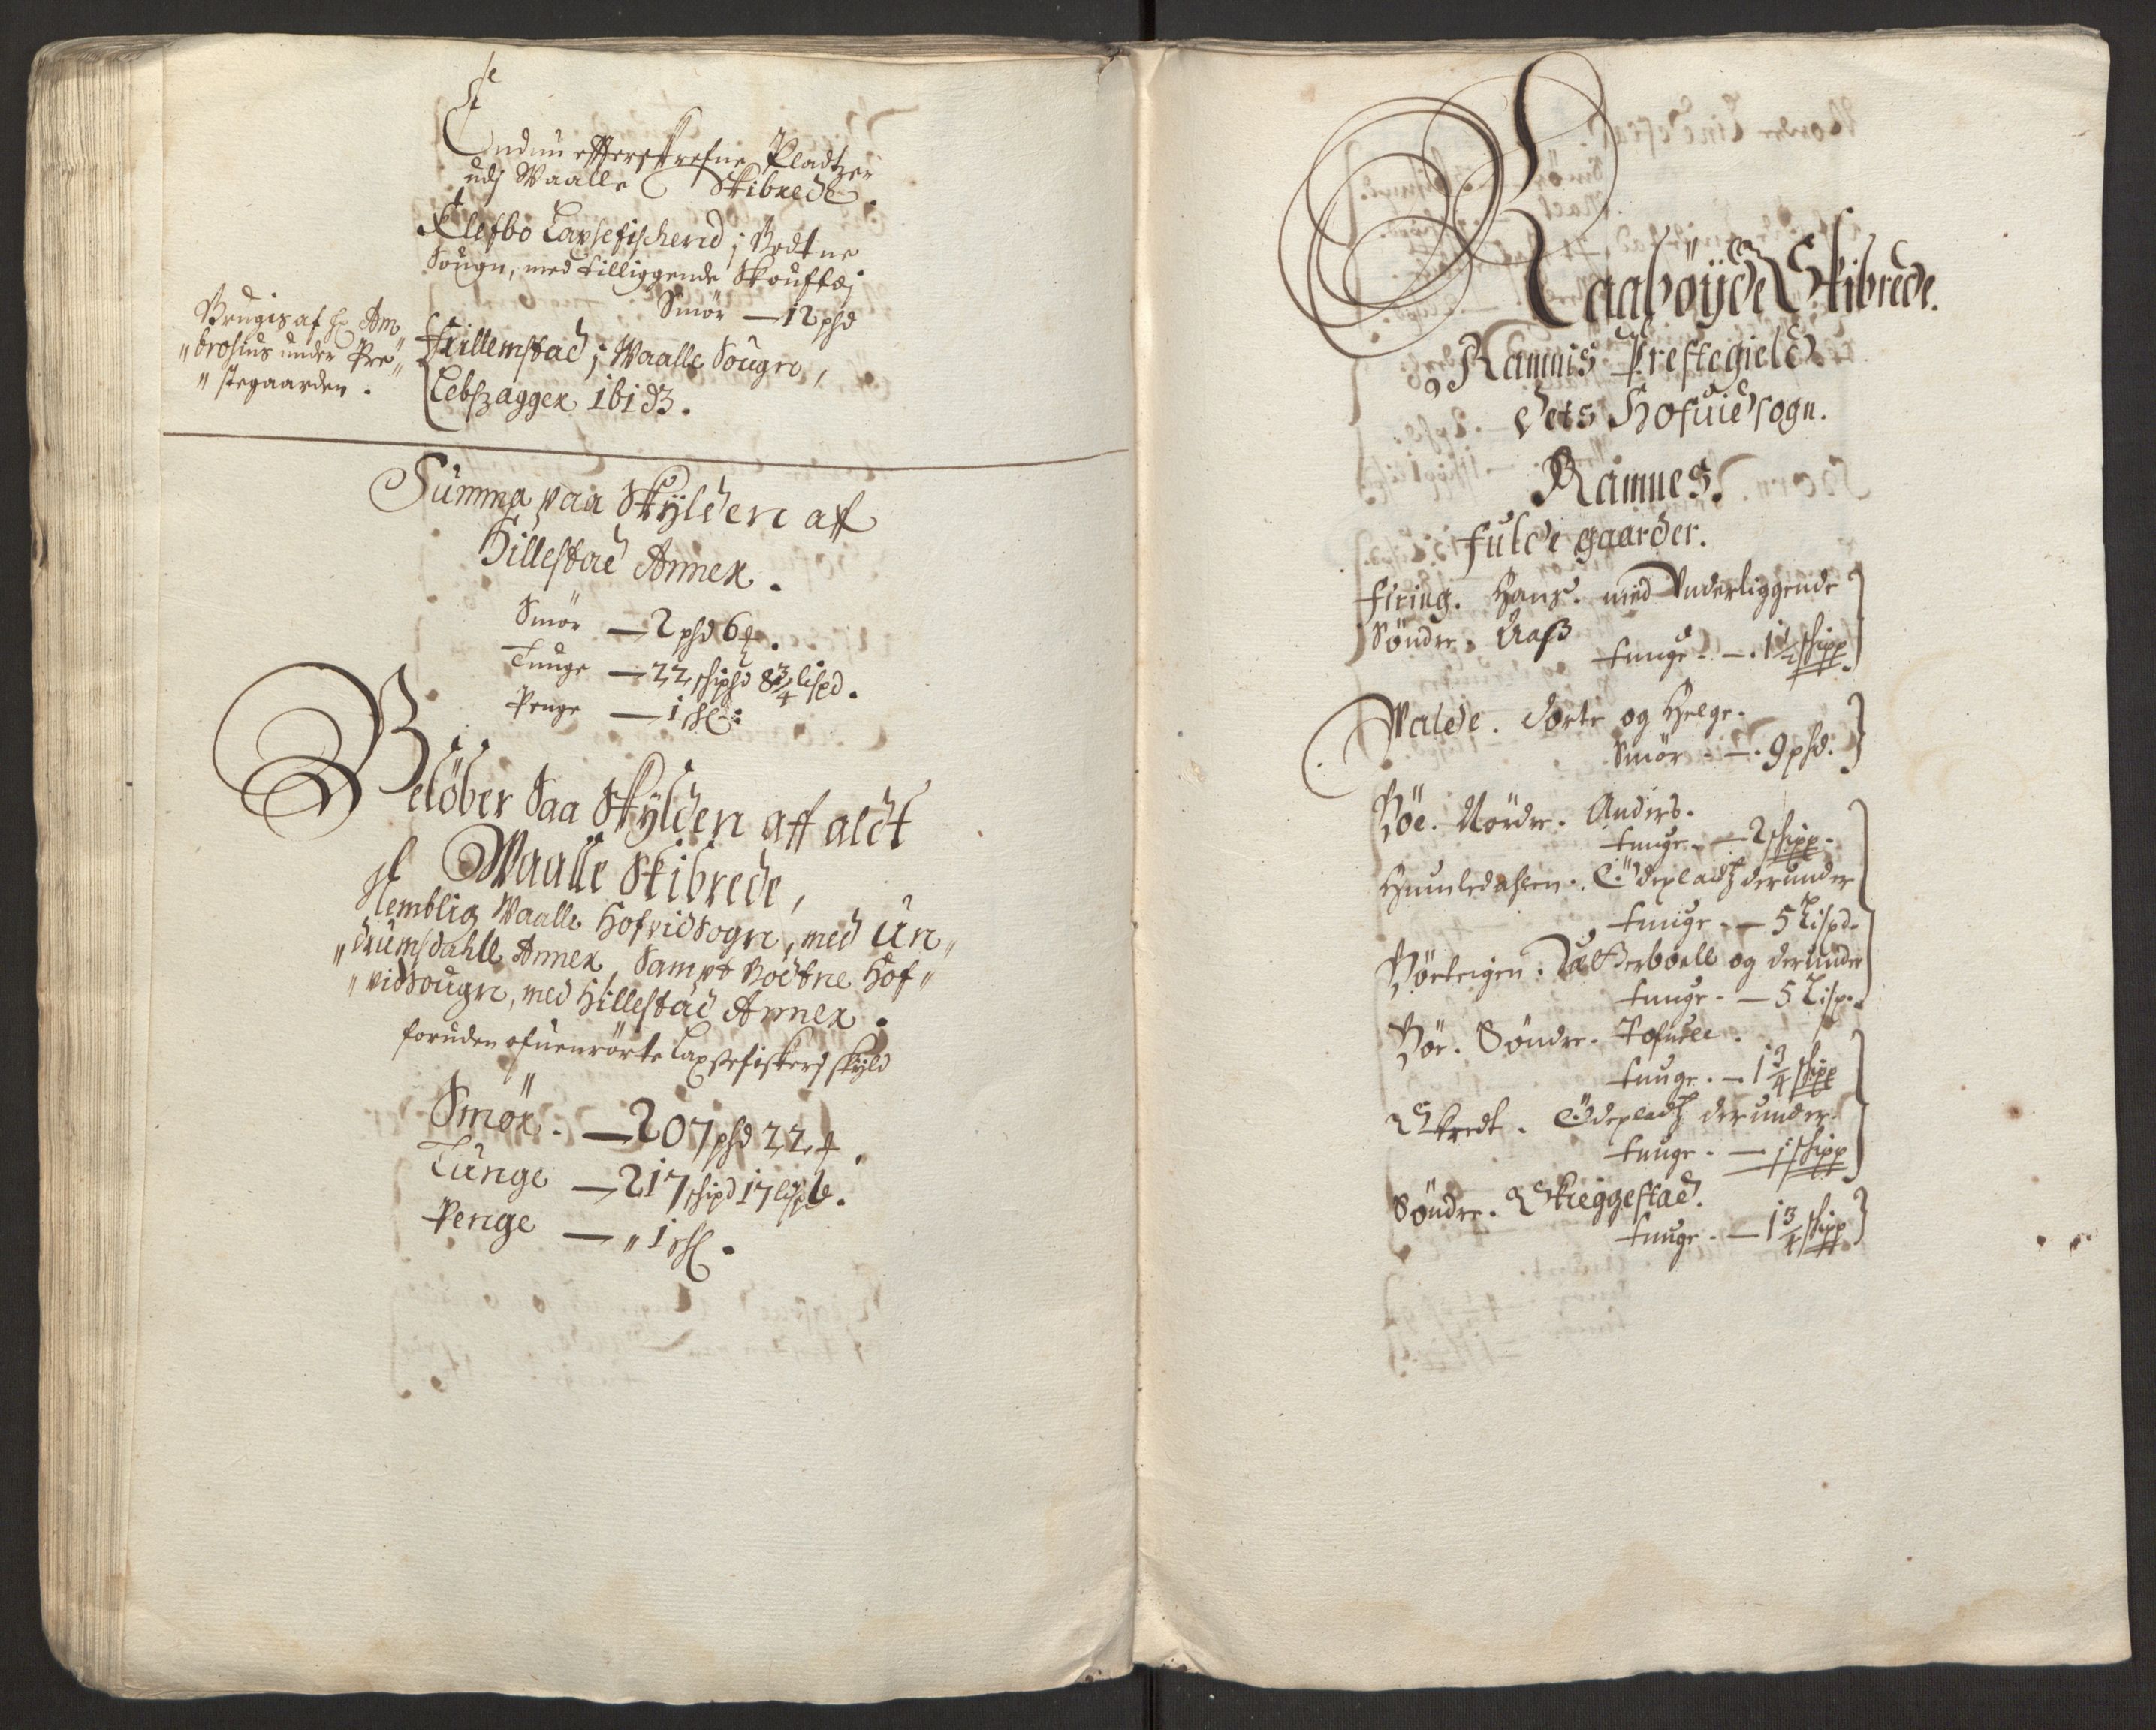 Endnu effterskrefne Pladtzer
udj Waalle Skibrede.
Klefbo Laxsefischerid j Bodtne
Sougn, med tilliggende Skouftej
Smör — 12 phd
Brugis af hr Am„
„brosius under Pre„
„stegaarden.
Trillemstad j Waalle Sougn,
Lebszagger ibid3.
Summa paa Skÿlden aff
Hillestad Annex.
Smör — 2 phd 6
Tunge — 22 skiphd 8 3/4 lispd.
Penge — 1 sk
Belöber Saa Skÿlden aff aldt
Waalle Skibrede,
Nemblig Waalle Hofvidsogn, med Un„
„drumsdahll Annex, Sampt Bodtne Hof„
„vidsougn, med Hillestad Annex.
foruden ofuenrörte Laxsefiskerj skÿld
Smör. — 207 phd 22
Tunge — 217 skipd 17 lispd.
Penge — „ 1 sk.
Raaböÿde Skibrede.
Ramnis Prestegield
dets Hofuidsogn.
Ramnes.
Fulde gaarder.
Firing. Hans. med Underliggende
Söndre. Aass
tunge. — . 1 1/2 skipp
Walde. Dorte og Helge.
Smör . — . 9 phd.
Böe. Nördre. Anders.
tunge. — 2 skipp.
Humledahlen. Ödepladtz derunder
tunge. — 5 Lispd.
Börteigen. og derunder
tunge. — 5 Lisp.
Böe. Söndre. Tofuell.
tunge. — 1 3/4 skipp
Skredt. Ödepladtz derunder.
tunge. — 1 skipp
Söndre. Skieggestad.
tunge. — 1 3/4 skipp